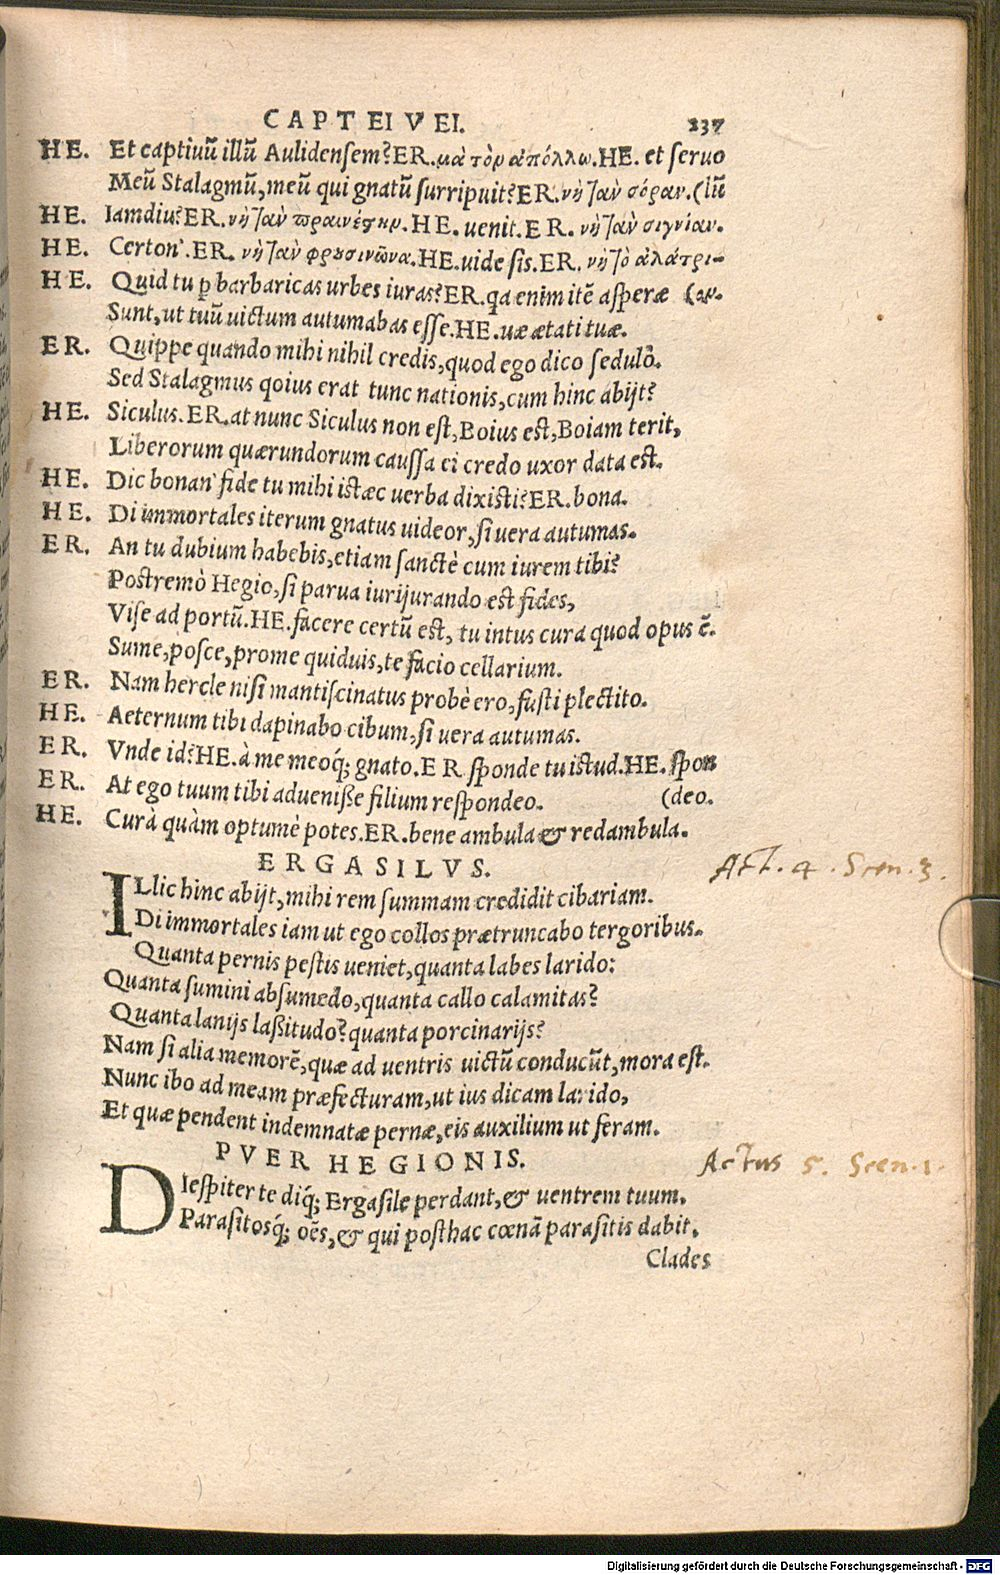 CAPTEIVEI. 237
HE. Et captiuũ illũ Aulidensem? ER. μὰ τὸρ ἀπόλλω. HE. et seruo
Meũ Stalagmũ, meũ qui gnatũ surripuit? ER. νὴ ταὺ σόραν. (lũ
HE. Iamdiu? ER. νὴ ταὺ πραινέστηρ. HE. uenit. ER. νὴ ταὺ σιγνίαν.
HE. Certon'. ER. νὴ ταὺ φρουσινῶνα. HE. uide sis. ER. νὴ τὸ ἀλάτρι-
HE. Quid tu ꝑ barbaricas urbes iuras? ER. qa enim itẽ asperæ (ον.
Sunt, ut tuũ uictum autumabas esse. HE. uæ ætati tuæ.
ER. Quippe quando mihi nihil credis, quod ego dico sedulò.
Sed Stalagmus qoius erat tunc nationis, cum hinc abijt?
HE. Siculus. ER. at nunc Siculus non est, Boius est, Boiam terit,
Liberorum quærundorum caussa ei credo uxor data est.
HE. Dic bonan' fide tu mihi istæc uerba dixisti? ER. bona.
HE. Di immortales iterum gnatus uideor, si uera autumas.
ER. An tu dubium habebis, etiam sanctè cum iurem tibi?
Postremò Hegio, si parua iurijurando est fides,
Vise ad portũ. HE. facere certũ est, tu intus cura quod opus ẽ.
Sume, posce, prome quiduis, te facio cellarium.
ER. Nam hercle nisi mantiscinatus probè ero, fusti plectito.
HE. Aeternum tibi dapinabo cibum, si uera autumas.
ER. Vnde id? HE. à me meoq́; gnato. ER sponde tu istud. HE. spon
ER. At ego tuum tibi adueniße filium respondeo. (deo.
HE. Cura quàm optumè potes. ER. bene ambula & redambula.
ERGASILVS.
ILlic hinc abijt, mihi rem summam credidit cibariam.
Di immortales iam ut ego collos prætruncabo tergoribus.
Quanta pernis pestis ueniet, quanta labes larido:
Quanta sumini absumedo, quanta callo calamitas?
Quanta lanijs laßitudo? quanta porcinarijs?
Nam si alia memorẽ, quæ ad uentris uictũ conducũt, mora est.
Nunc ibo ad meam præfecturam, ut ius dicam larido,
Et quæ pendent indemnatæ pernæ, eis auxilium ut feram.
PVER HEGIONIS.
DIespiter te diq́; Ergasile perdant, & uentrem tuum.
Parasitosq́; oẽs, & qui posthac cœnã parasitis dabit.
Clades
Act. 4. Scen. 3.
Actus 5. Scen. 1.
Digitalisierung gefördert durch die Deutsche Forschungsgemeinschaft - DFG